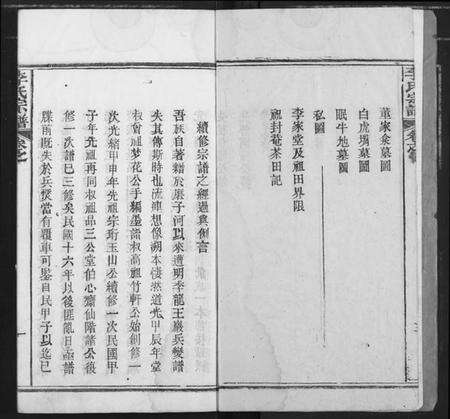 董家菴墓圖
白虎塆墓圖
眠牛地墓圖
私圖
李家堂及祖田界限
祖封菴茶田記
李氏宗譜
續修宗譜之經過與例言
吾族自著籍於麻子河以來遭明季龍王巖兵燹譜
失其傳斯時也流連想像溯本悽愴道光甲辰年堂
叔曾祖夢花公手編墨譜叔高祖竹軒公始創修一
次光緒甲申年先祖宗珩玉山公續修一次民國甲
子年先祖再同叔祖品三公堂伯心齋仙階諸公復
修一次譜已三修矣民國十六年以後匪亂日亟譜
牒兩既失於兵燹當有覆車可鑒自民甲子以迄已
李氏宗譜